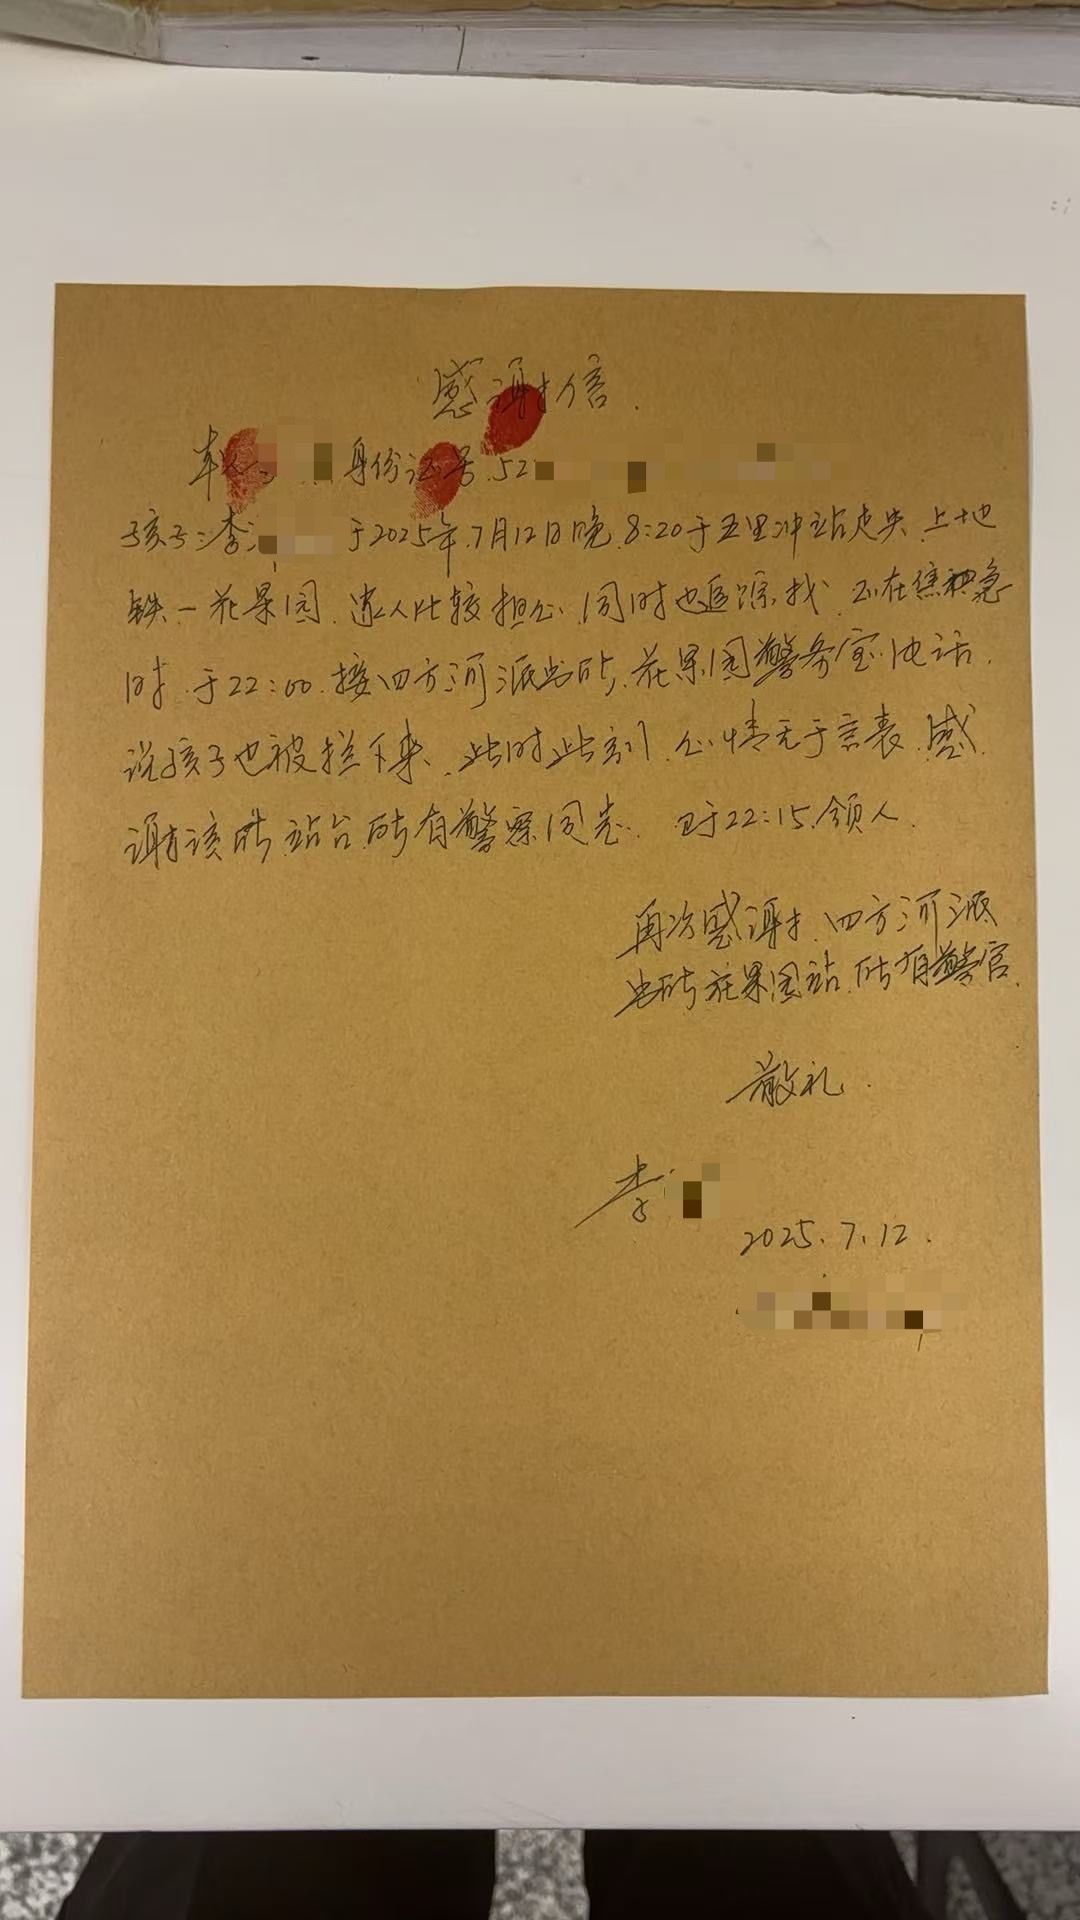 感谢信.
本人 身份证号.52
孩子:李 于2025年.7月12日晚.8:20于五里冲站走失.上地
铁一花果园.家人比较担心.同时也追踪找.正在焦急
时.于22:00.接四方河派出所.花果园警务室电话.
说孩子也被拦下来.此时此刻.心情无于言表.感
谢该所.站台.所有警察同志. 已于22:15.领人.
再次感谢.四方河派
出所花果园站.所有警官.
敬礼.
李
2025.7.12.